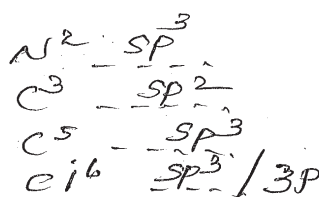 N² sp³
C³ sp²
C⁵ sp³
Cl⁶ sp³/3p